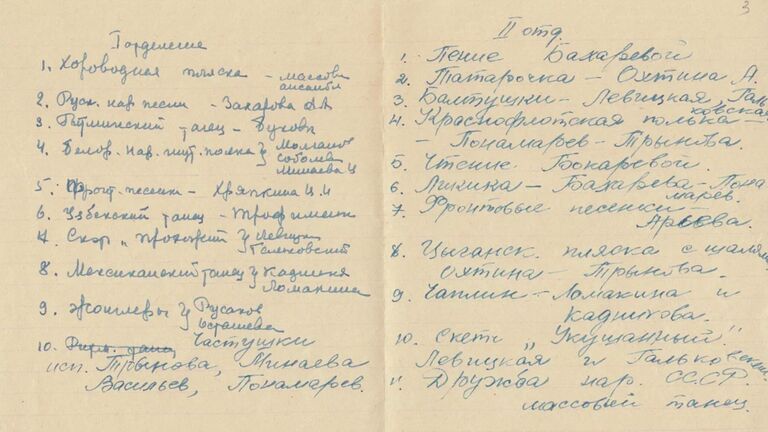 I отделение
1. Хороводная пляска - массовая ансамбль
2. Русск. нар. песни - Захарова А.А.
3. танец -
4. Белор. нар. шут. полька Соболева Минаева
5. Фронт. песенки - Хряпкина
6. Узбекский танец - Трофимен
7. Скэр „Прохожий Левицк Гальковский
8. Мексиканский танец Кадников Ломакина
9. Жонглеры Русаков Осташева
10. Частушки
исп. Трынова, Минаева
Васильев, Пономарев.
3
II отд.
1. Пение Бахаревой
2. Татарочка - Охтина А.
3. Болтушки - Левицкая, Галь
ковская
4. Краснофлотская полька -
- Пономарев - Трынова.
5. Чтение Бокаревой.
6. - Бахарева - Поно
марев.
7. Фронтовые песенки -
8. Цыганск. пляска с шалям
Охтина - Трынова.
9. Чаплин - Ломакина и
Кадникова.
10. Скетч „Укушанный".
Левицкая и Гальковский.
11. Дружба нар. СССР.
массовый танец.